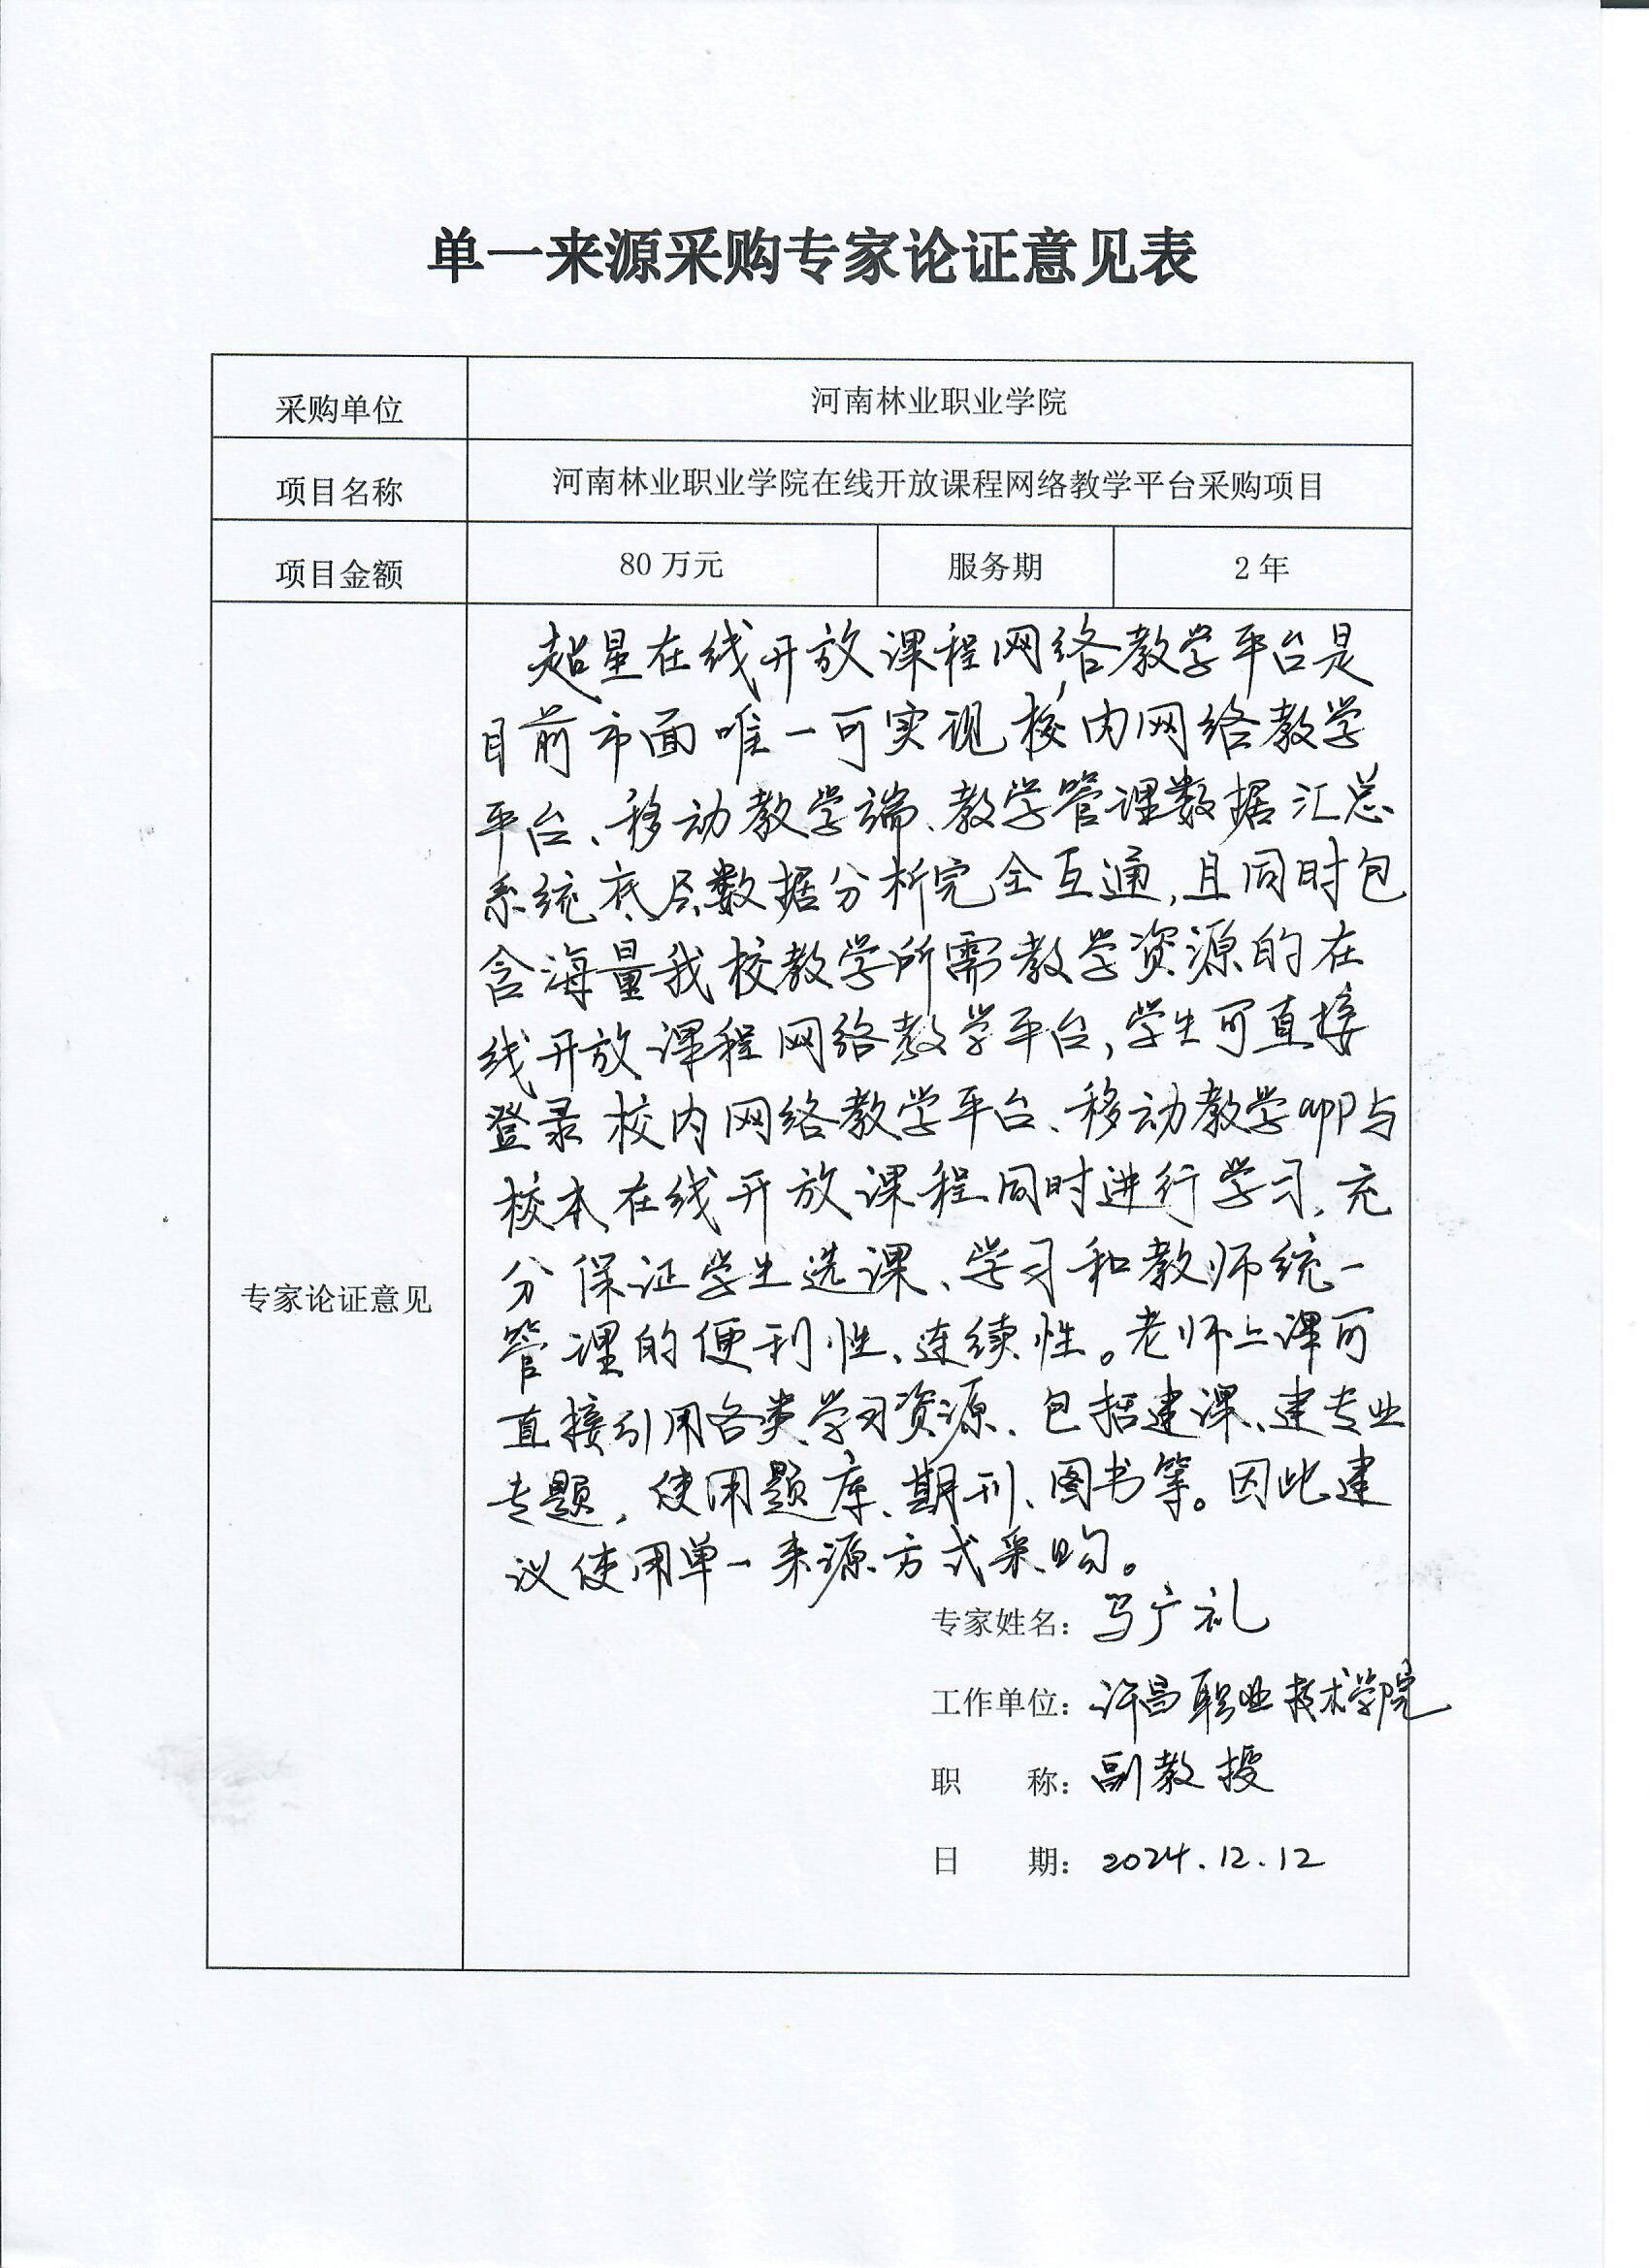 单一来源采购专家论证意见表
采购单位
河南林业职业学院
项目名称
河南林业职业学院在线开放课程网络教学平台采购项目
项目金额
80 万元
服务期
2 年
专家论证意见
超星在线开放课程网络教学平台是
目前市面唯一可实现校内网络教学
平台、移动教学端、教学管理数据汇总
系统底层数据分析完全互通,且同时包
含海量我校教学所需教学资源的在
线开放课程网络教学平台,学生可直接
登录校内网络教学平台、移动教学app与
校本在线开放课程同时进行学习,充
分保证学生选课、学习和教师统一
管理的便利性、连续性。老师上课可
直接引用各类学习资源、包括建课、建专业
专题,使用题库、期刊、图书等。因此建
议使用单一来源方式采购。
专家姓名:马广礼
工作单位:许昌职业技术学院
职 称:副教授
日 期:2024.12.12